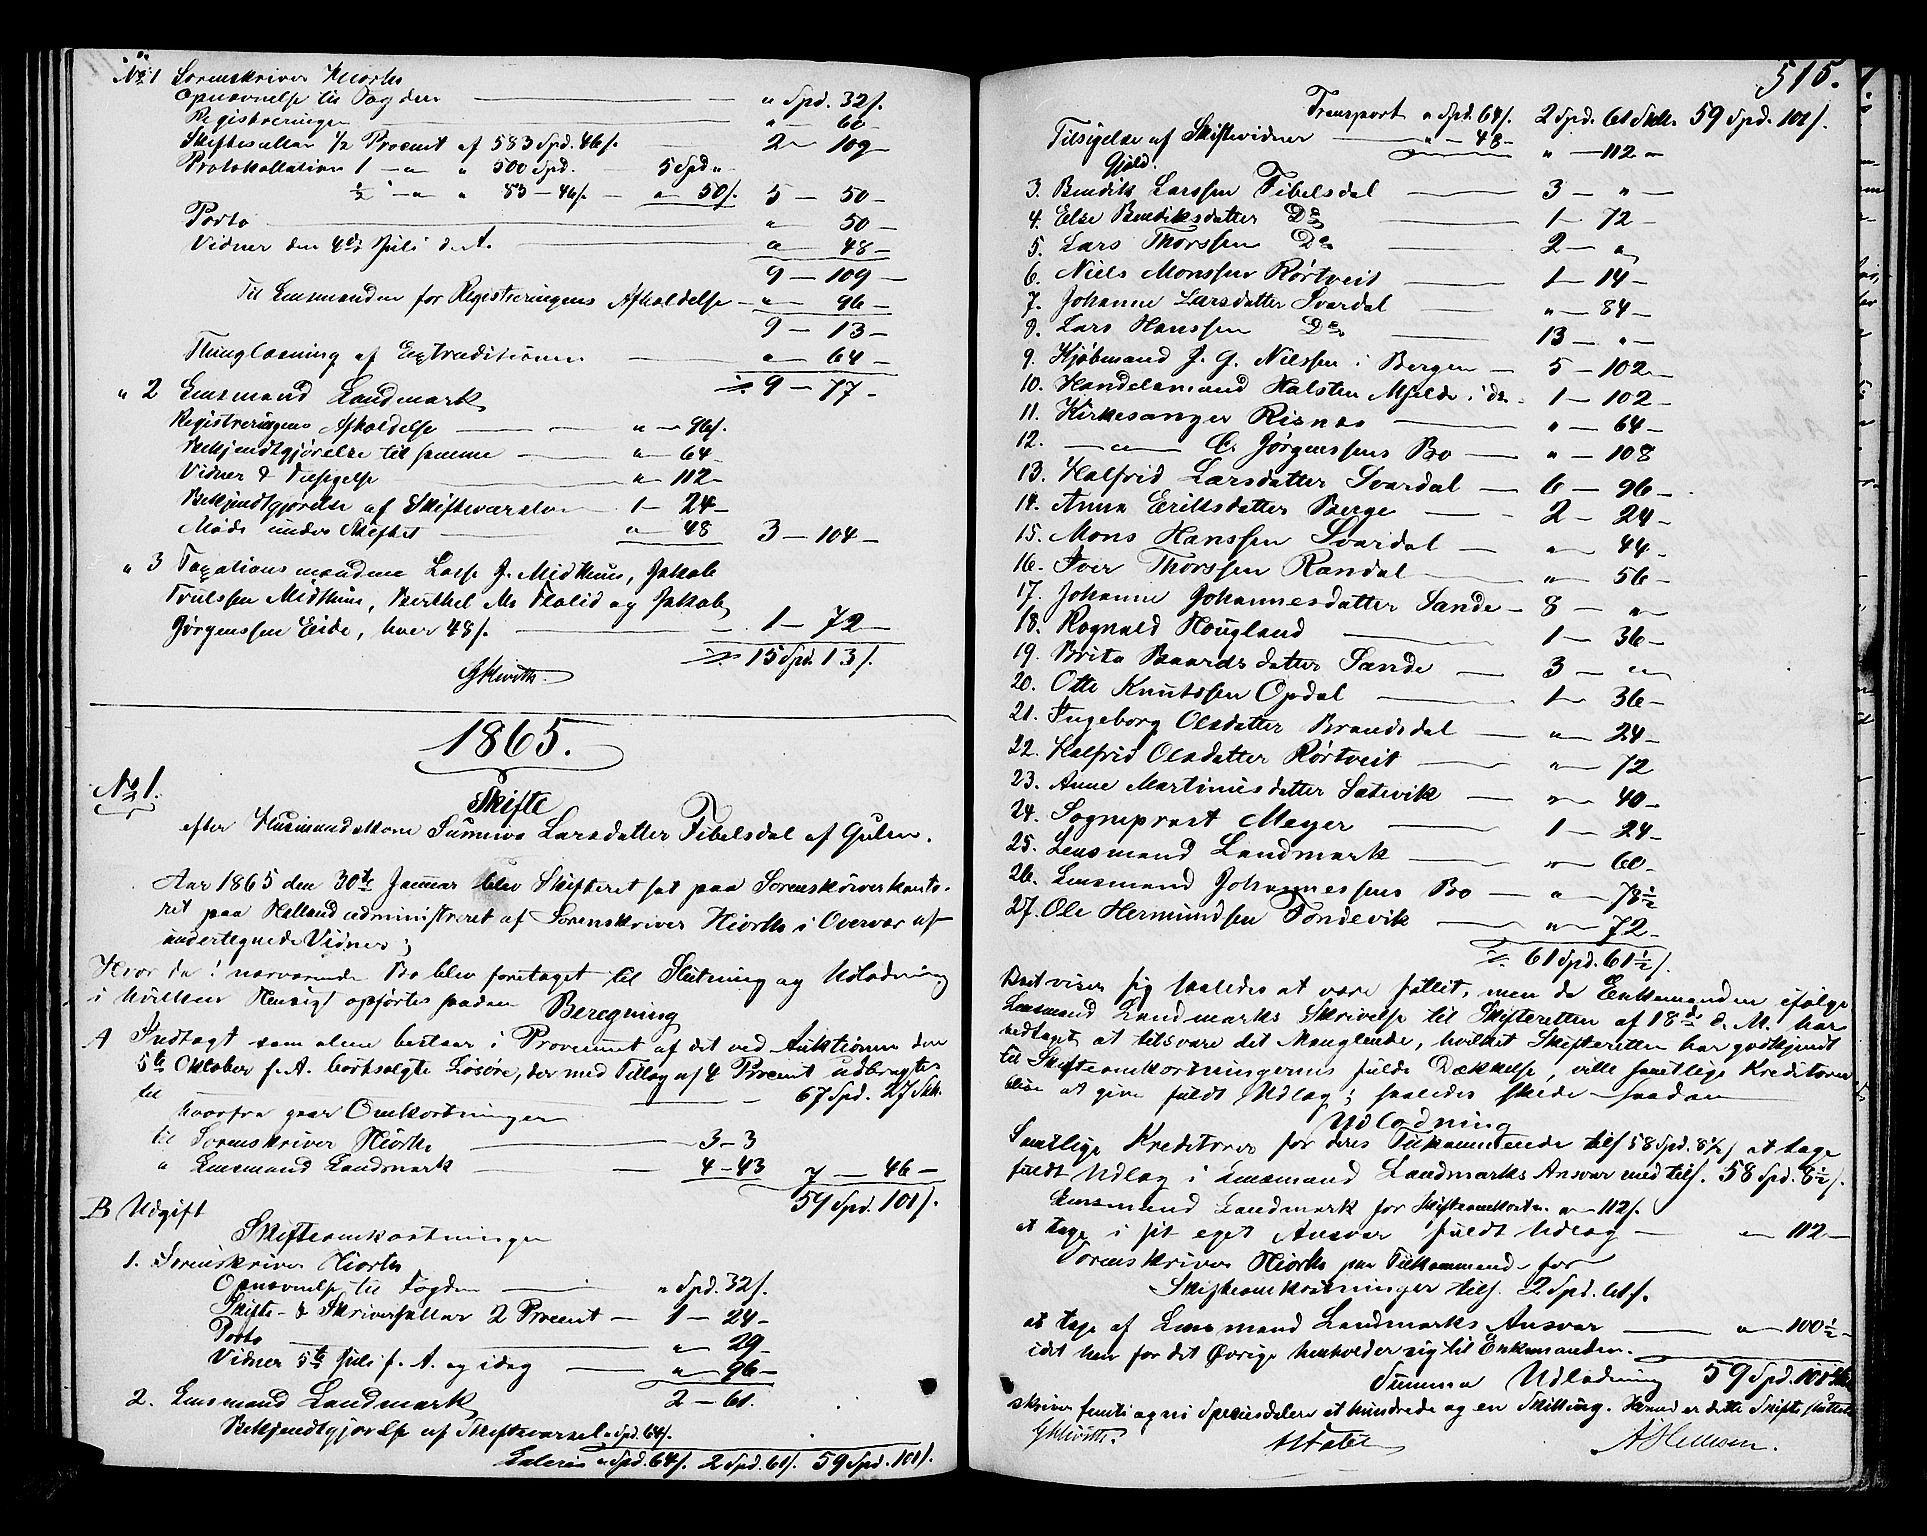 No 1 Sorenskriver Hiorth
Opnævnelse til Fogden — " Spd. 32 s.
Registreringen — " 60 —
Skiftesallar 1/2 Procent af 583 Spd. 46 s. — 2 — 109 —
Protokollation 1 — " — " 500 Spd. — 5 Spd "
1/2 — " — " 83 — 46 s. — " — 50 s. 5 — 50 —
Porto — " 50 —
Vidner den 4de Juli d. A. — " 48 —
9 — 109 —
Til Lensmanden for Registreringens Afholdelse — " — 96 —
9 — 13 —
Thinglæsning af Extraditionen — " — 64 —
9 — 77 —
" 2 Lensmand Landmark
Registreringens Afholdelse — " — 96 s.
Bekjendtgjørelse til samme — " — 64 —
Vidner & Tilsigelse — " — 112 —
Bekjendtgjørelse af Skiftevarslen 1 — 24 —
Møde under Skiftet — " — 48 3 — 104 —
" 3 Taxationsmændene Lasse J. Midthun, Jakob
Trulssen Midthun, Berthel M. Flolid og Jakob
Jørgenssen Eide, hver 48 s. — 1 — 72 —
15 Spd. 13 s.
1865.
No 1.
Skifte
efter Husmandskone Sunneva Larsdatter Fibelsdal af Gulen.
Aar 1865 den 30te Januar blev Skifteret sat paa Sorenskriverkonto-
ret paa Helland administreret af Sorenskriver Hiorth i Overvær af
undertegnede Vidner;
Hvor da i nærværende Bo blev foretaget til Slutning og Udlodning
i hvilken Hensigt opførtes saadan Beregning
A Indtægt som alene bestaar i Provenuet af det ved Auktionen den
5te Oktober f. A. bortsolgte Løsøre, der med Tillæg af 4 Procent udbragtes
til — 67 Spd. 27 Sk.
hvorfra gaar Omkostninger
til Sorenskriver Hiorth — 3 — 3
" Lensmand Landmark — 4 — 43 7 — 46 —
59 Spd. 101 s.
B Udgift
Skifteomkostninger
1. Sorenskriver Hiorth
Opnævnelse til Fogden — " Spd. 32 s.
Skifte- & Skriversallar 2 Procent — 1 — 24 —
Porto — " 29 —
Vidner 5te Juli f. A. og idag — " 96 —
2 — 61.
2. Lensmand Landmark
Bekjendtgjørelse af Skiftevarsel " Spd. 64 s.
Lateris " Spd. 64 s. 2 Spd. 61 s. 59 Spd. 101 s.
515.
Transport " Spd. 64 s. 2 Spd. 61 Skill. 59 Spd. 101 s.
Tilsigelse af Skiftevidner — " — 48 —
" — 112 —
Gjæld.
3. Bendik Larssen Fibelsdal — 3 — " —
4. Else Bendiksdatter Do — 1 — 72 —
5. Lars Thorssen Do — 2 — "
6. Niels Monssen Rørtveit — 1 — 14 —
7. Johanne Larsdatter Svardal — " — 84 —
8. Lars Hanssen Do — 13 — " —
9. Kjøbmand J. G. Nilssen i Bergen — 5 — 102 —
10. Handelsmand Halsten Mjelde i do — 1 — 102 —
11. Kirkesanger Risnes — " — 64 —
12. — " — C. Jørgenssens Bo — " — 108
13. Halfrid Larsdatter Svardal — 6 — 96 —
14. Anna Eriksdatter Berge — 2 — 24 —
15. Mons Hanssen Svardal — " — 44 —
16. Iver Thorssen Randal — " — 56 —
17. Johanne Johannesdatter Sande — 8 — "
18. Rognald Hougland — 1 — 36 —
19. Brita Baardsdatter Sande — 3 — "
20. Otte Knudssen Opdal — 1 — 36 —
21. Ingeborg Olsdatter Brandsdal — " — 24 —
22. Halfrid Olsdatter Rørtveit — " — 72
23. Anne Martinusdatter Sætevik — " — 40 —
24. Sogneprest Meyer — 1 — 24 —
25. Lensmand Landmark — " — 60 —
26. Lensmand Johannessens Bo — " — 78 1/2
27. Ole Hermundsen Tondevik — " — 72 —
61 Spd. 61 1/2 s.
Boet viser sig saaledes at være fallit, men da Enkemanden ifølge
Lensmand Landmarks Skrivelse til Skifteretten af 18de d. M. har
vedtaget at tilsvare det Manglende, hvilket Skifteretten har godkjendt
til Skifteomkostningernes fulde Dækkelse, ville samtlige Kreditorer
blive at give fuldt Udlæg; saaledes skede — saadan
Udlodning
Samtlige Kreditorer for deres Tilkommende tils. 58 Spd. 8 1/2 s at tage
fuldt Udlæg i Lensmand Landmarks Ansvar med tils. 58 Spd. 8 1/2 s.
Lensmand Landmark for Skifteomkostn. " — 112 s.
at tage i sit eget Ansvar fuldt Udlæg — " — 112 —
Sorenskriver Hiorth paa Tilkommende for
Skifteomkostninger tils. 2 Spd. 61 s.
at tage af Lensmand Landmarks Ansvar — " — 100 1/2 —
idet han for det Øvrige henholder sig til Enkemanden.
Summa Udlodning 59 Spd. 101 Sk.
skriver femti og ni Speciesdaler et hundrede og en Skilling. Hvormed er dette Skifte sluttet.